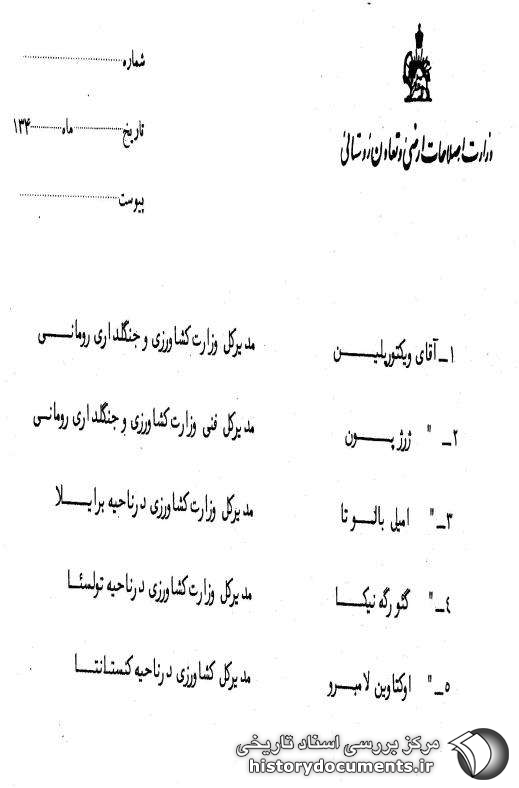 وزارت اصلاحات ارضی و تعاون روستائی
شماره
تاریخ ماه ۱۳۴
پیوست
۱ـ آقای ویکتورپلیـــن مدیرکل وزارت کشاورزی و جنگلداری رومانــی
۲ـ " ژرژ پـــون مدیرکل فنی وزارت کشاورزی و جنگلداری رومانی
۳ـ " امیلی بالــو تا مدیرکل وزارت کشاورزی درناحیه برایــلا
٤ـ " گئورگه نیکــا مدیرکل وزارت کشاورزی درناحیه تولسئــا
۵ـ " اوکتاوین لامبــرو مدیرکل کشاورزی درناحیه کنستانتــا
مرکز بررسی اسناد تاریخی
historydocuments.ir